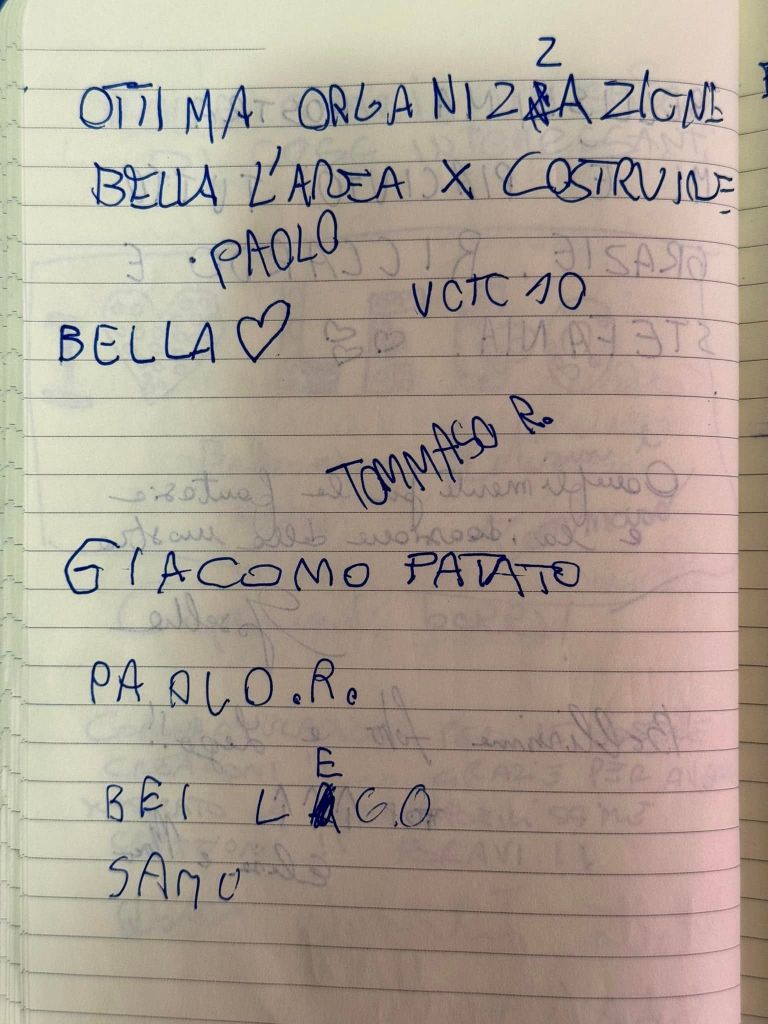 OTTIMA ORGANIZZAZIONE
BELLA L'AREA X COSTRUIRE
PAOLO
VOTO 10
BELLA ♡
TOMMASO R.
GIACOMO PATATO
PAOLO.R.
BEI LEGO
SAMU